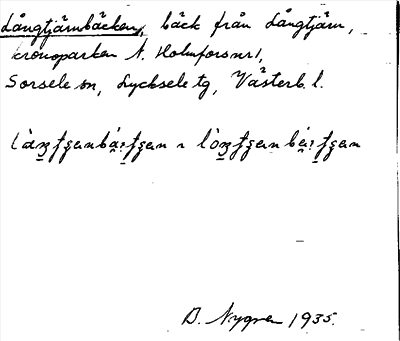 Långtjärnbäcken, bäck från Långtjärn,
kronoparken N. Holmfors nr 1,
Sorsele sn, Lycksele tg, Västerb. l.
B. Nygren 1935.